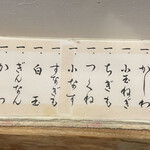 一 かしわ
一 小玉ねぎ
一 ちぎも
一 つくね
一 小なす
一 すなぎも
一 白玉
一 ぎんなん
一 かつ